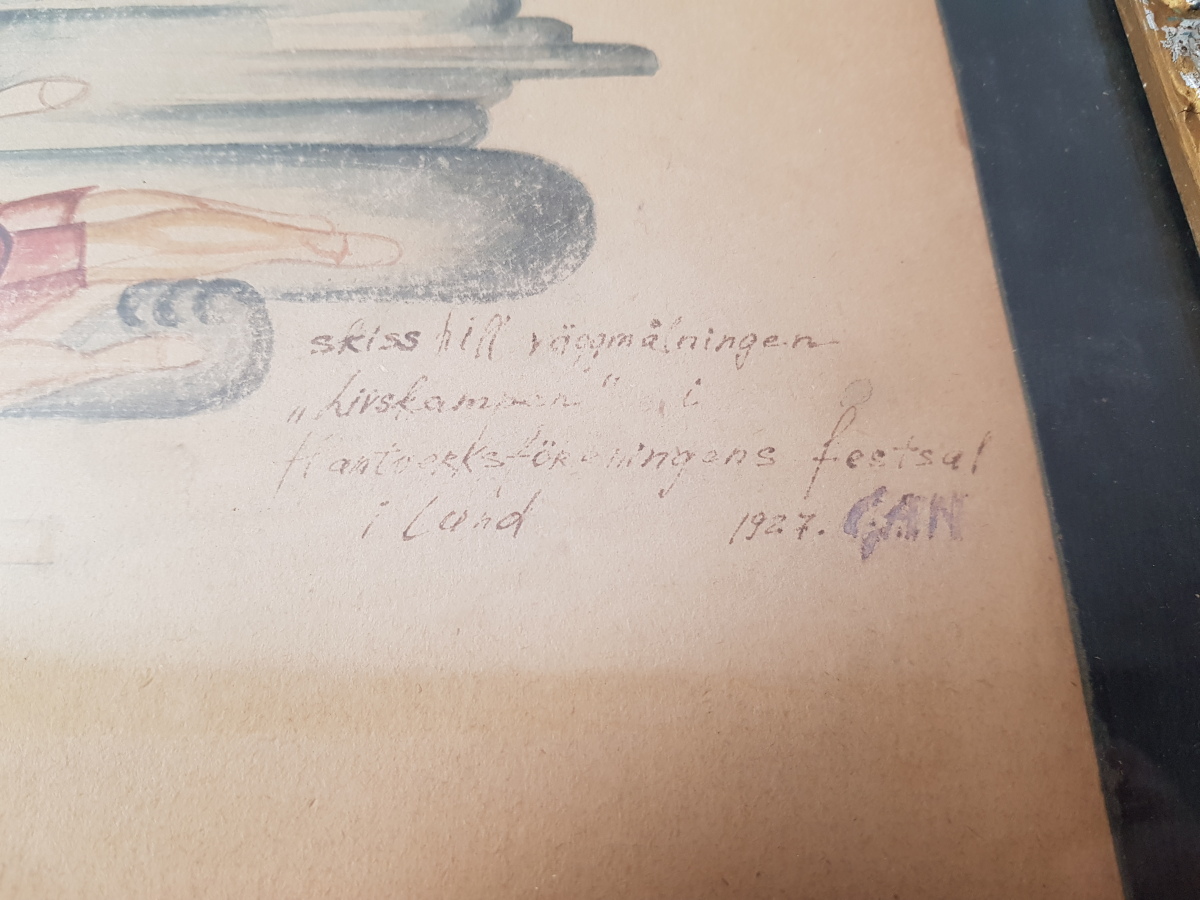 skiss till väggmålningen
„Livskampen" i
Hantverksföreningens festsal
i Lund 1927. GAN